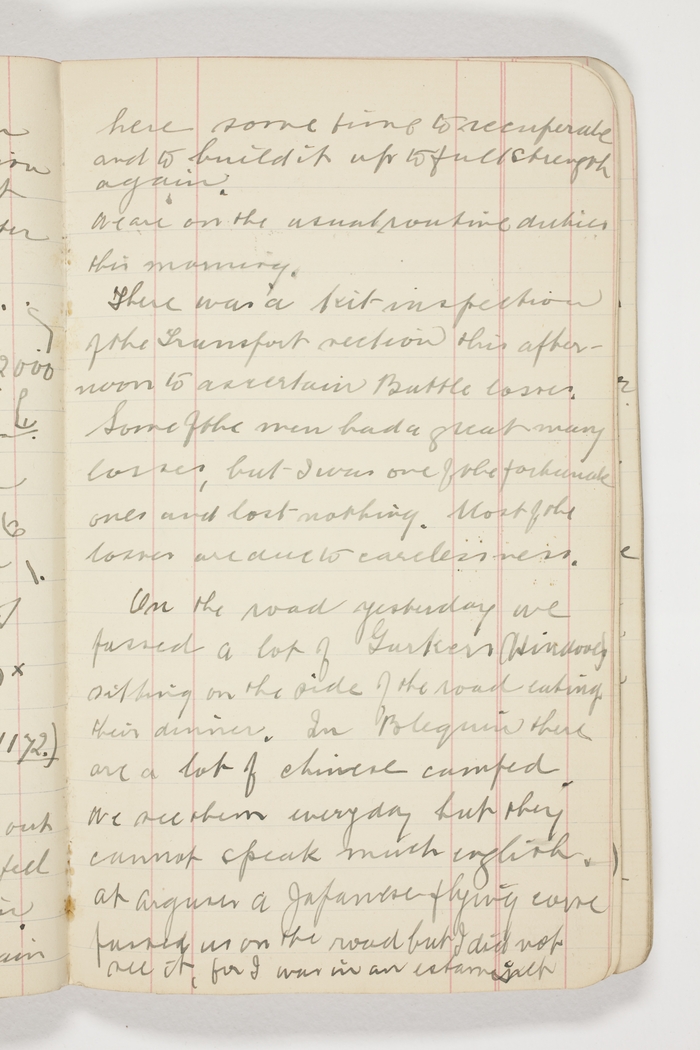 here some time to recuperate
and to build it up to full strength
again.
We are on the usual routine duties
this morning.
There was a kit inspection
of the Transport section this after-
noon to ascertain Battle losses.
Some of the men had a great many
losses, but I was one of the fortunate
ones and lost nothing. Most of the
losses are due to carelessness.
On the road yesterday we
passed a lot of Gurkers (Hindoos)
sitting on the side of the road eating
their dinner. In Blequin there
are a lot of chinese camped.
We see them everyday but they
cannot speak much english.
at a Japanese flying corps
passed us on the road but I did not
see it, for I was in an
2000
1172.)
out
feel